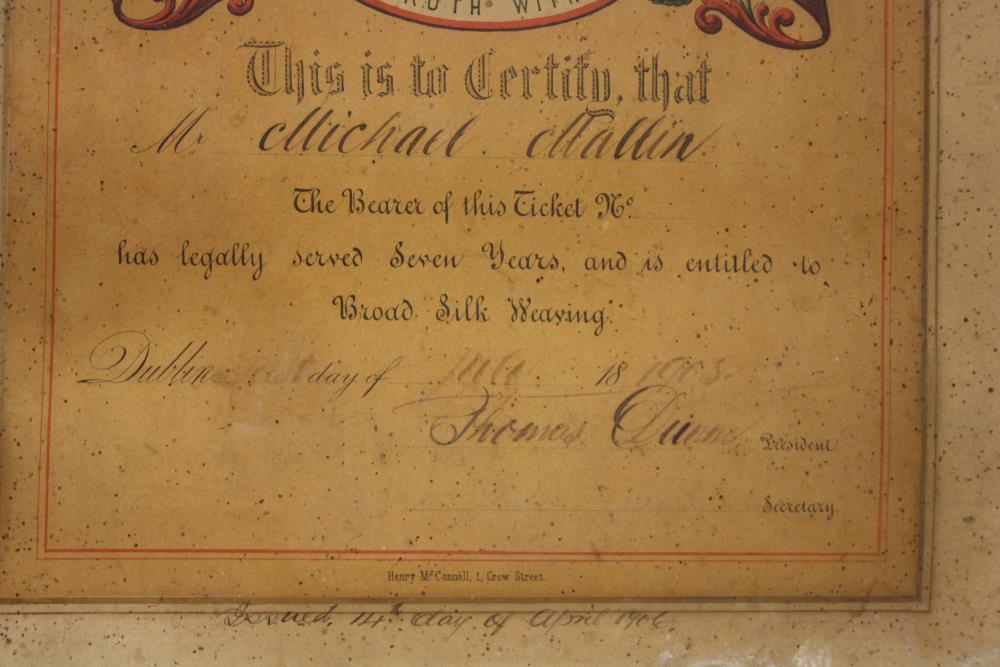 This is to Certify, that
Mr Michael Mallin
The Bearer of this Ticket No.
has legally served Seven Years, and is entitled to
Broad Silk Weaving.
Dublin day of July 18 1903
Thomas Dunne President
Secretary
Henry McConnell, 1, Crow Street.
Issued, 14th day of April 1906